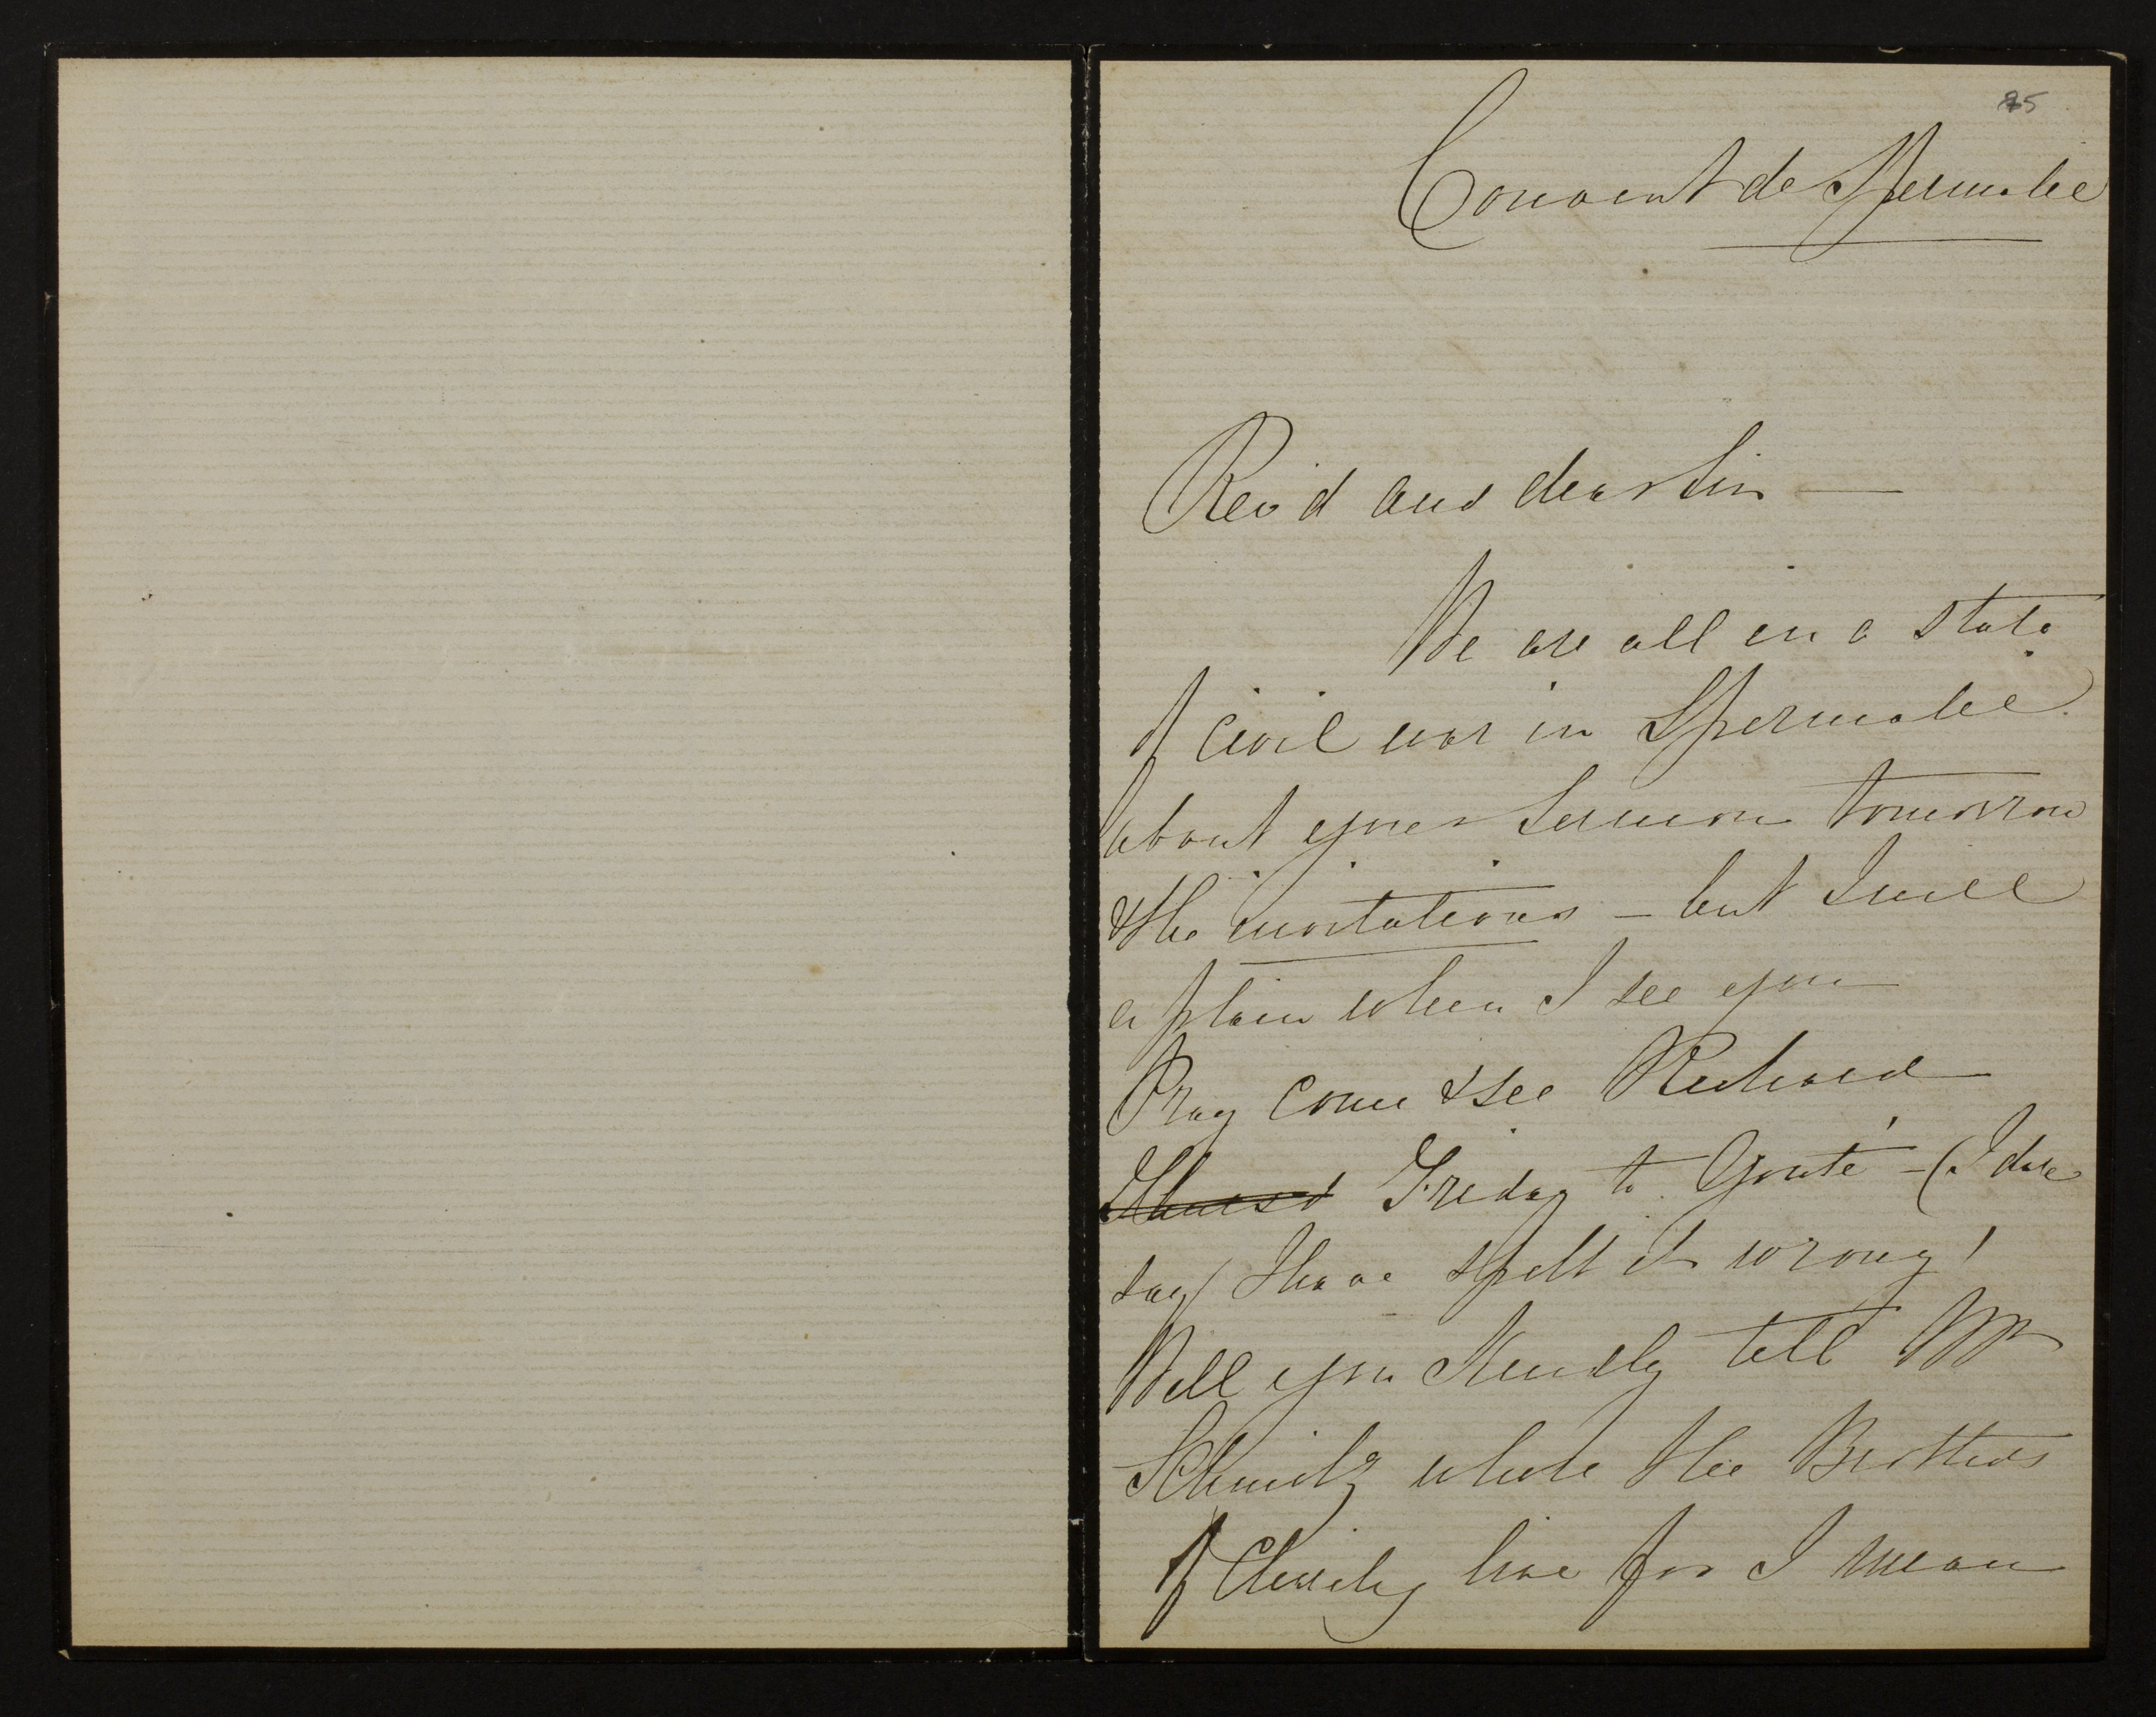 85
Couvent de Spermalie
Rev'd and dear Sir —
We are all in a state
of civil war in Spermalie
about your Sermon tomorrow
& the invitations — but I will
explain when I see you
Pray come & see Richard
Thursd Friday to Gouté — (I dare
say) I have spelt it wrong!
Will you kindly tell Mr
Schmitz where the Brothers
of Charity live for I mean